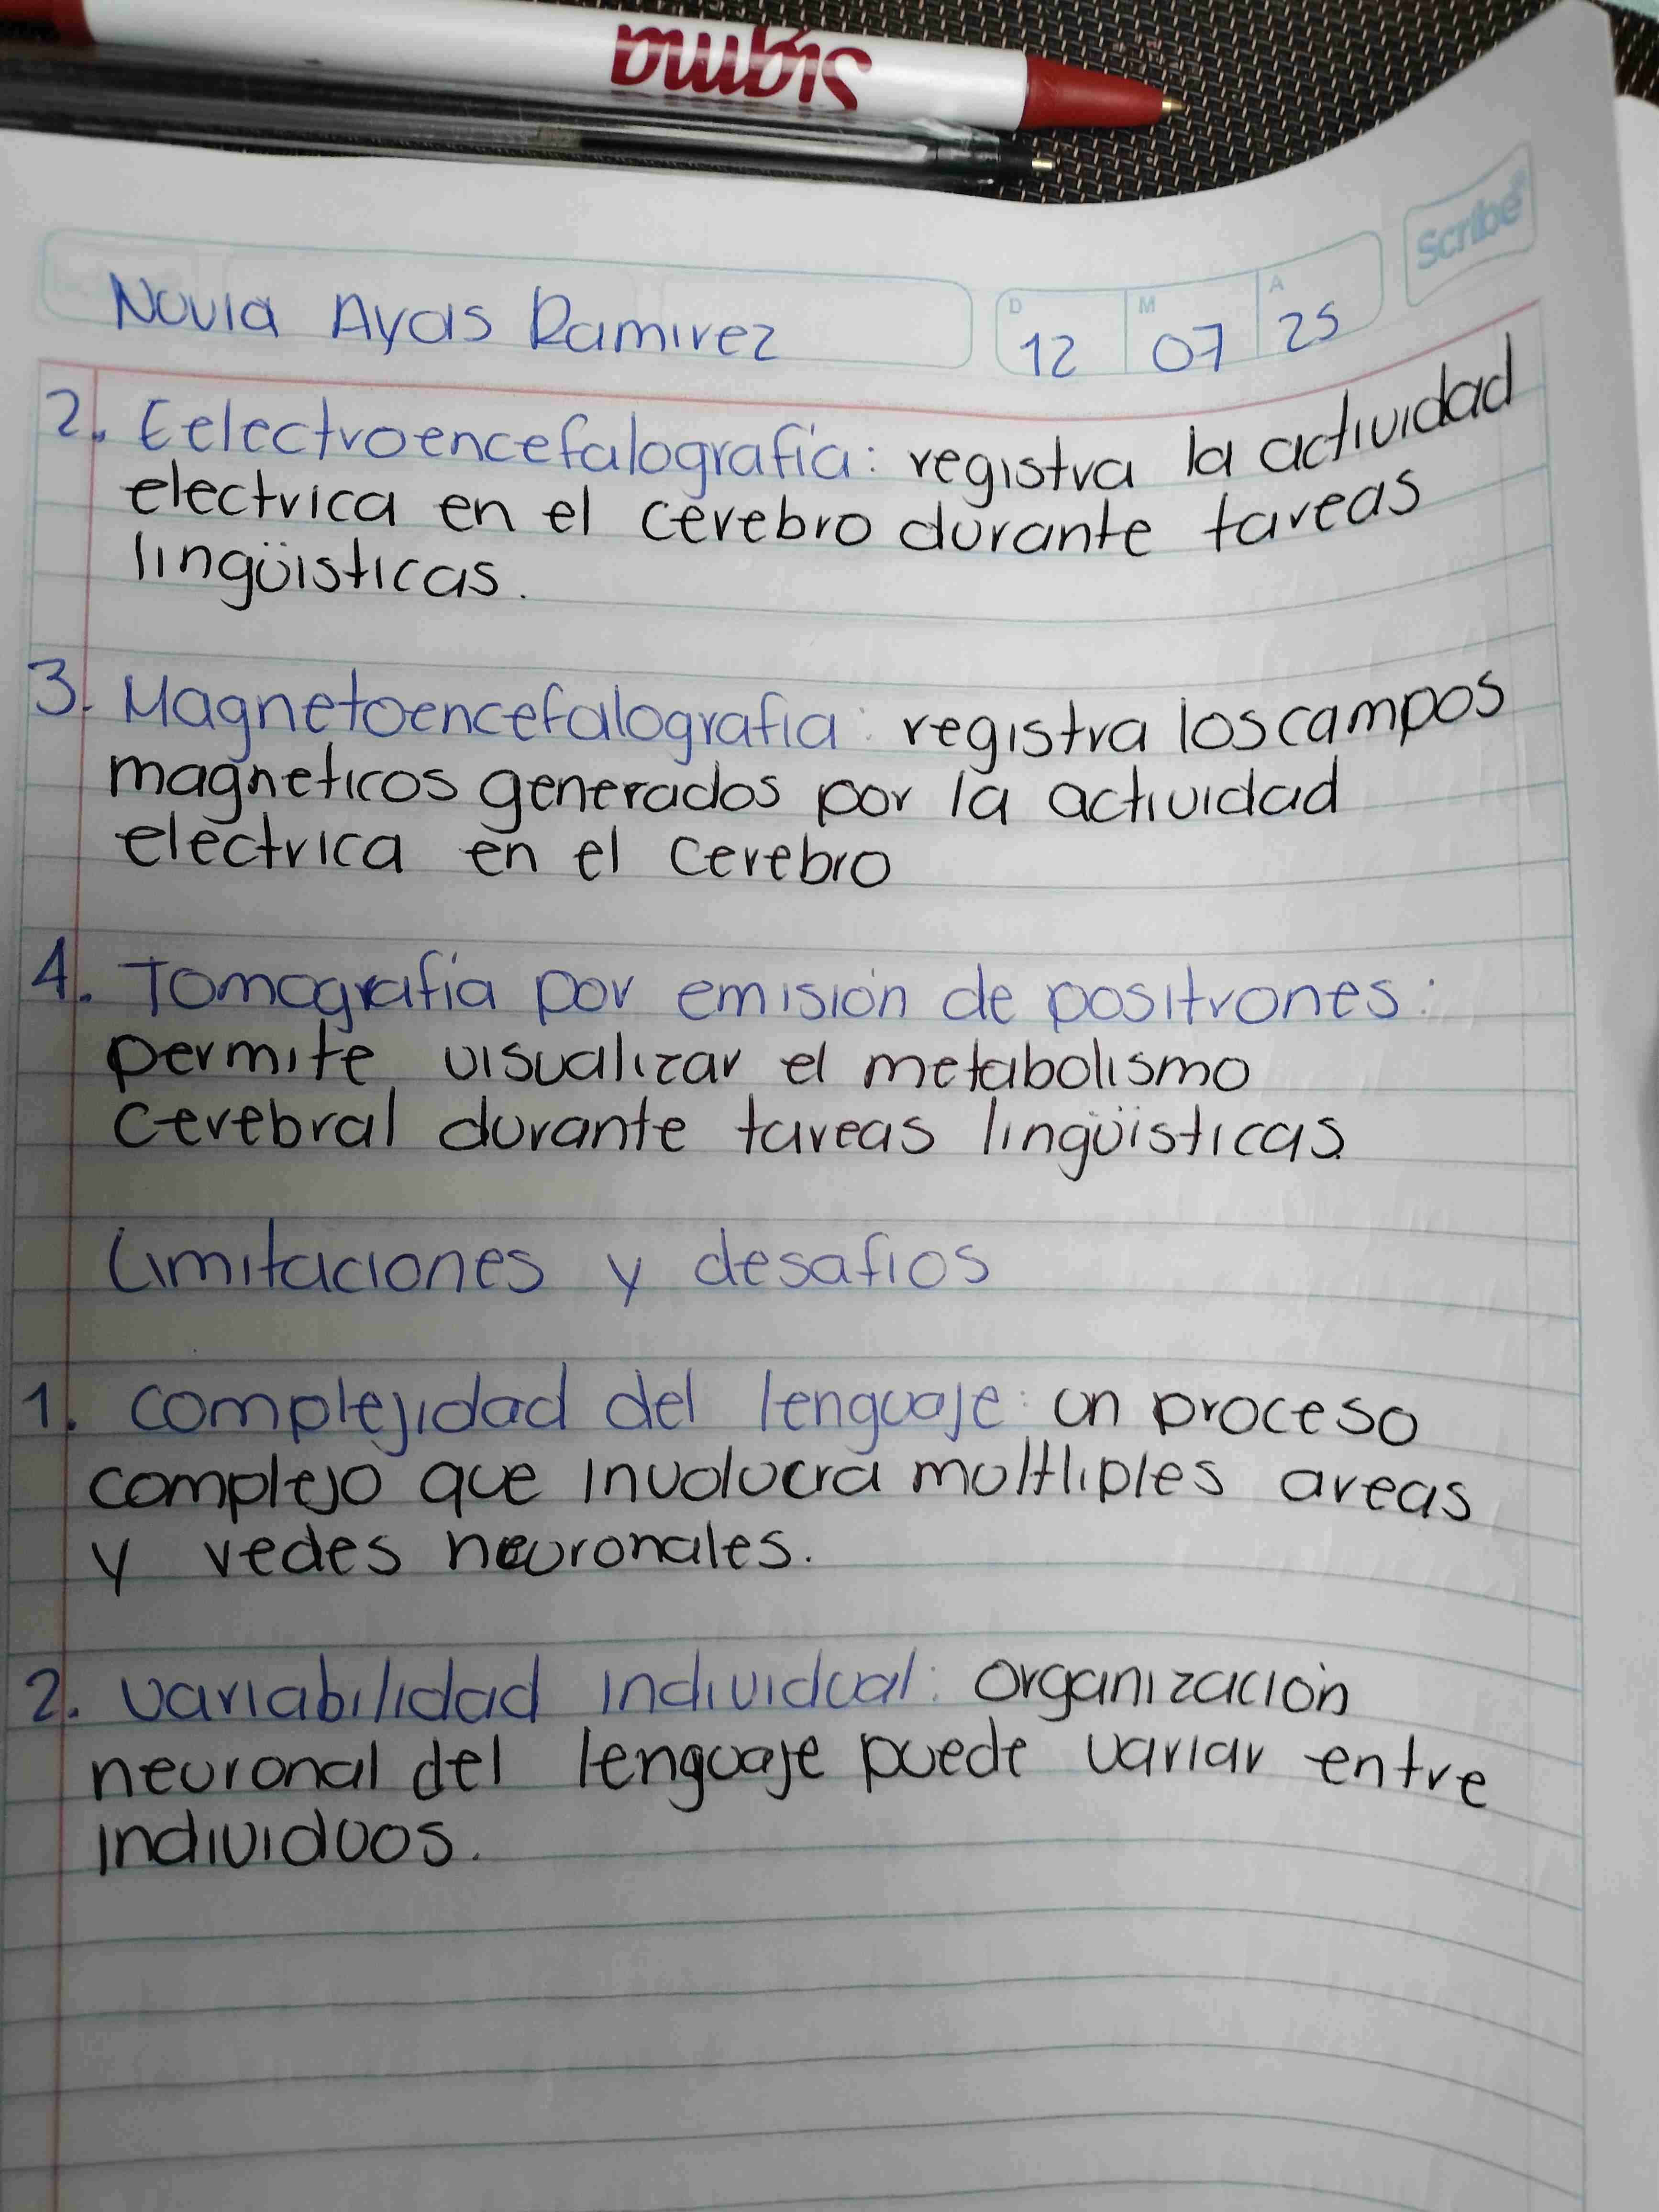 sigma
Scribe
Nouia Ayas Ramirez
D 12 M 07 A 25
2. Eelectroencefalografía: registra la actividad
electrica en el cerebro durante tareas
lingüisticas.
3. Magnetoencefalografia: registra los campos
magneticos generados por la actividad
electrica en el cerebro
4. Tomografía por emisión de positrones:
permite visualizar el metabolismo
cerebral durante tareas lingüisticas.
Limitaciones y desafios
1. complejidad del lenguaje: un proceso
complejo que involucra moltliples areas
y redes neuronales.
2. variabilidad individual: organización
neuronal del lenguaje puede variar entre
individuos.